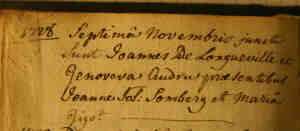 1778 Septimâ Novembris juncti
Sunt Joannes De Longueville et
Genoveva Audrus præsentibus
Joanne Jos. Somberg et Mariâ
Gigot